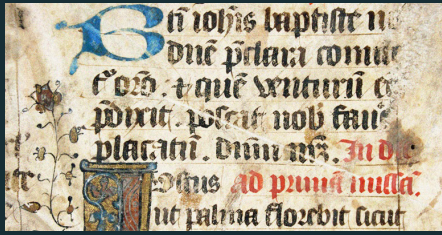 Bti iohis baptiste n
dñe p̃clara comm
t' oro̅. ⁊ quē venturū
p̃dixit. poscat nob faue
placatū. dnm nr̅m. In d
ad primā missā.
ut palma florebit sicut